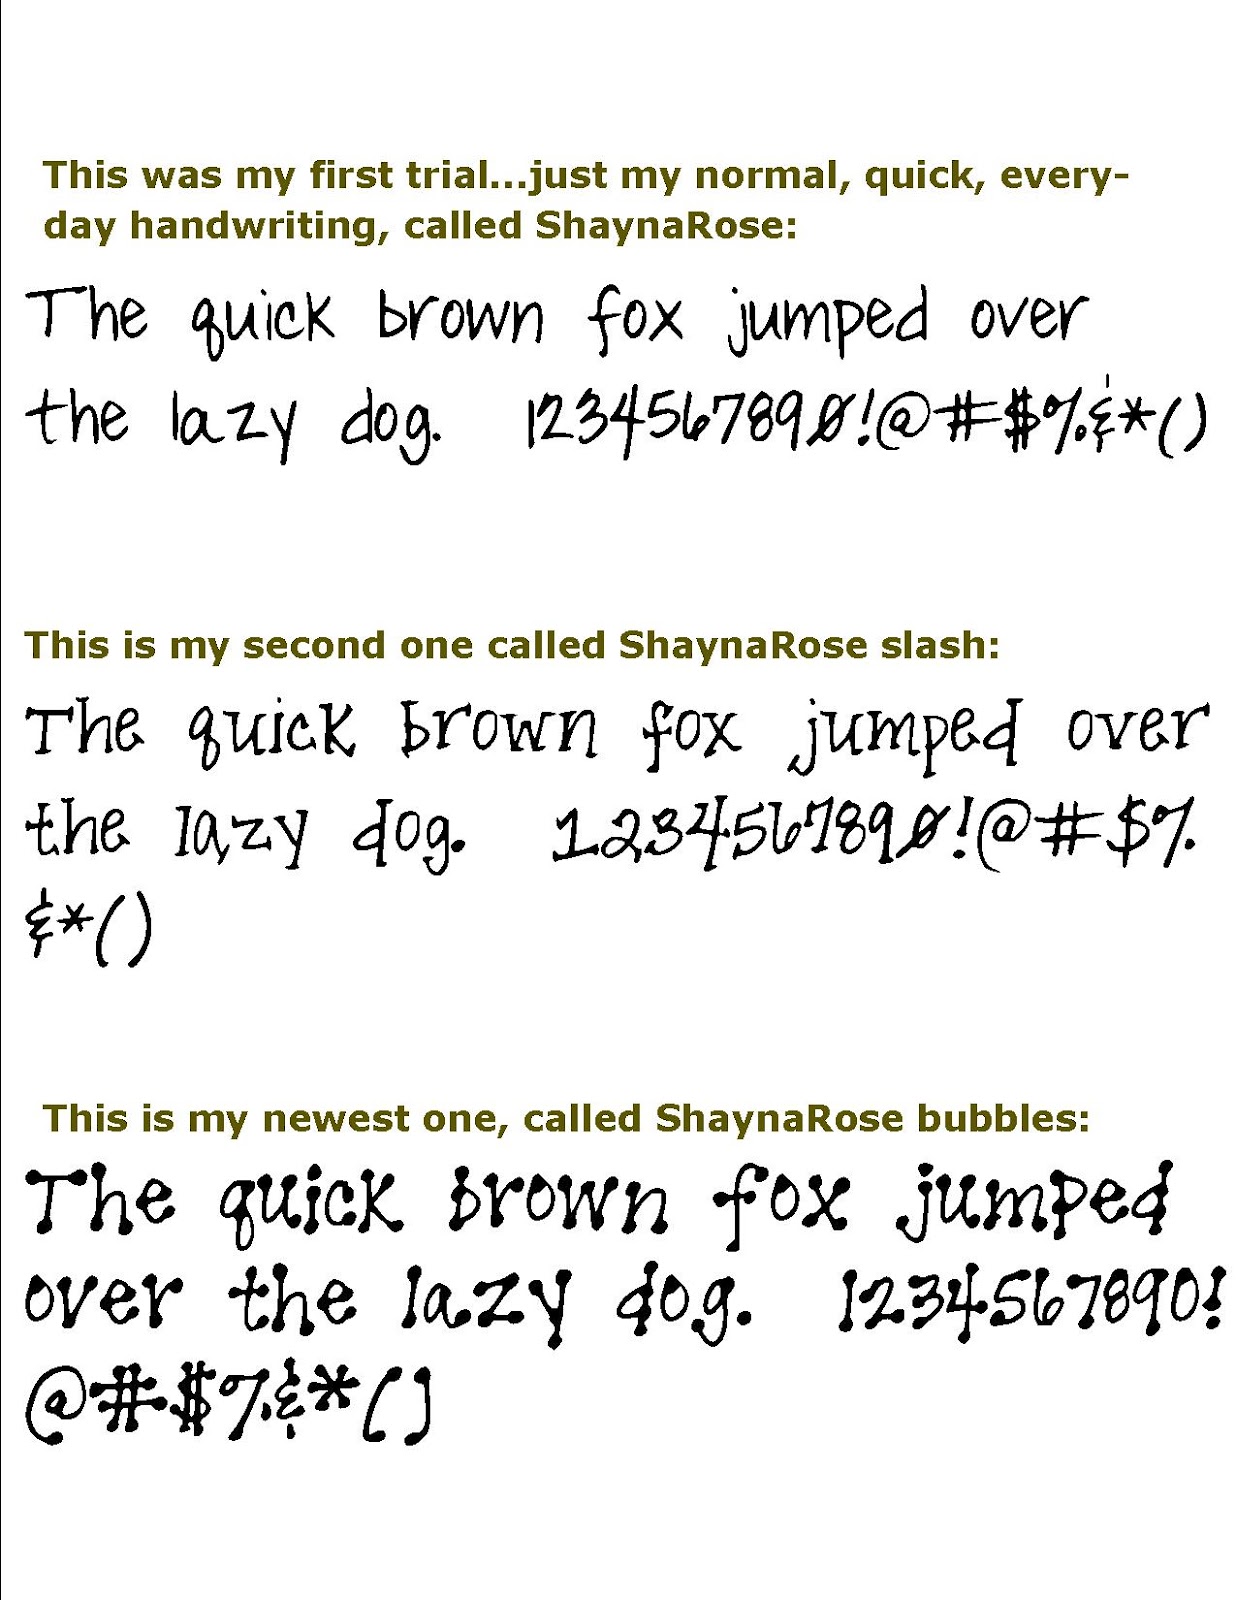 This was my first trial...just my normal, quick, every-
day handwriting, called ShaynaRose:
The quick brown fox jumped over
the lazy dog. 1234567890!@#$%&*()
This is my second one called ShaynaRose slash:
The quick brown fox jumped over
the lazy dog. 1234567890!@#$%
&*()
This is my newest one, called ShaynaRose bubbles:
The quick brown fox jumped
over the lazy dog. 1234567890!
@#$%&*()